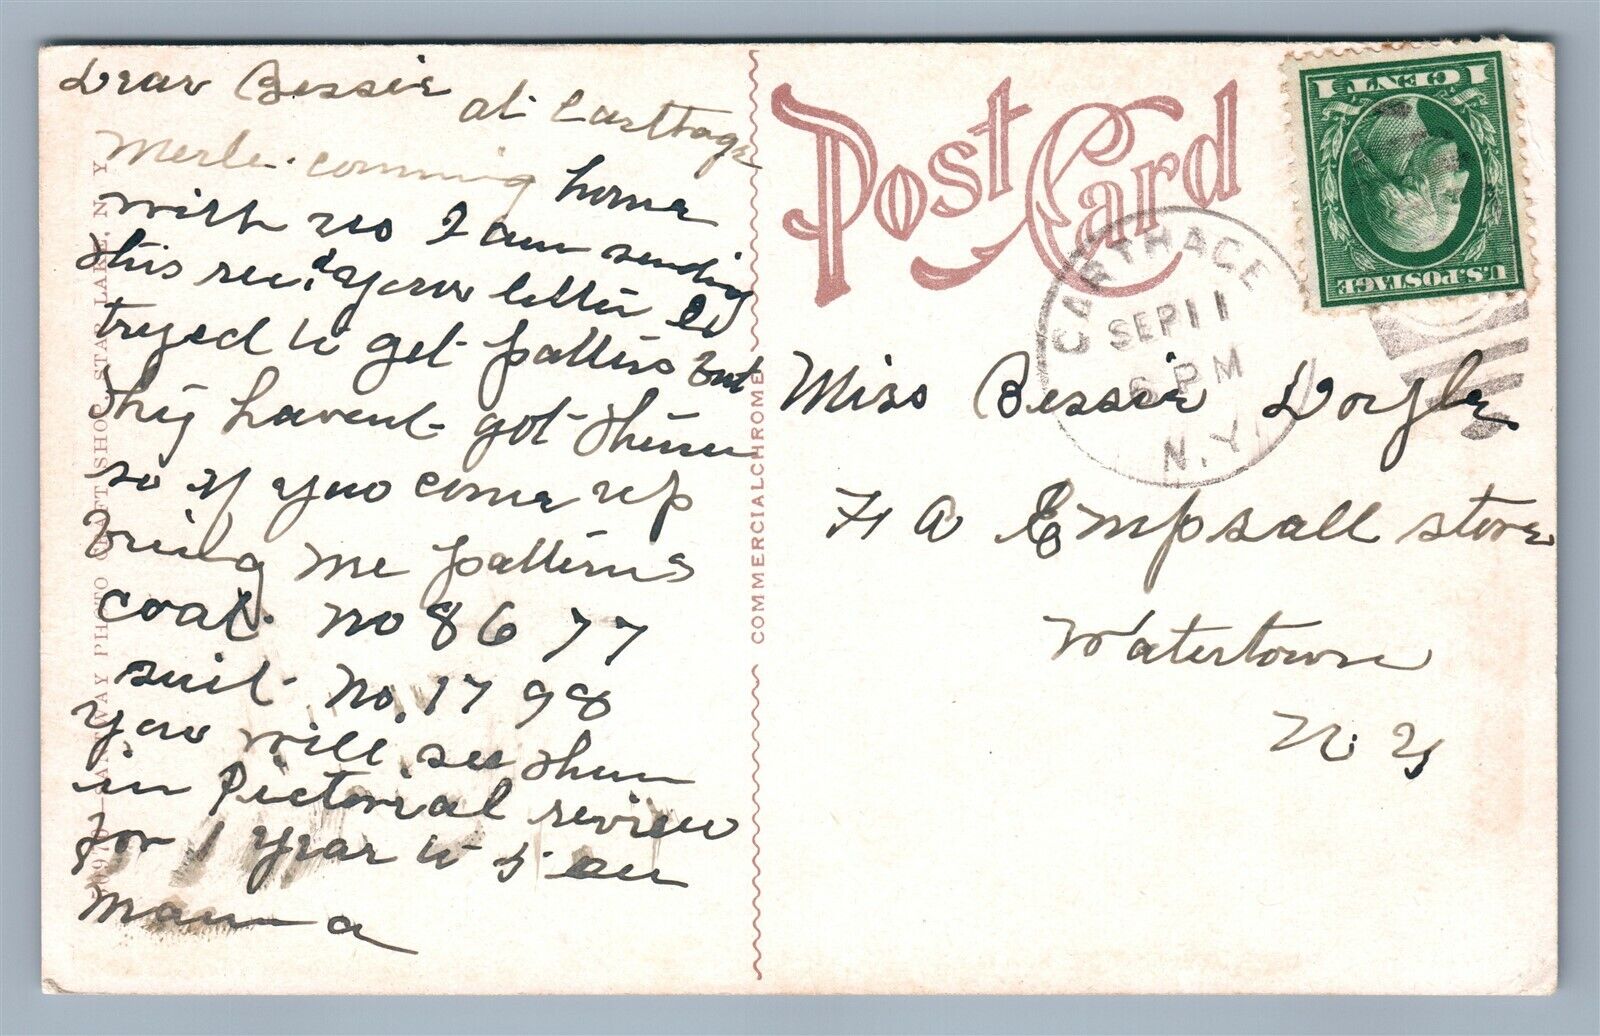 Dear Bessie
at Carthage
Merle comming home
with us I am sending
this rec'd your letter
tryed to get patterns but
they havent got them
so if you come up
bring me patterns
coat no 8677
suit no. 1798
you will see them
in Pictorial review
for 1 year
Mama
Post Card
CARTHAGE
SEP 11
6 PM
N.Y.
1 CENT 1
U.S. POSTAGE
Miss Bessie Doyle
A Empsall store
Watertown
N. Y
COMMERCIALCHROME
ANTWAY PHOTO CRAFT SHOP, STAR LAKE, N. Y.